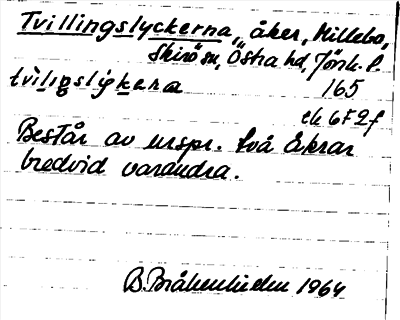 Tvillingslyckerna, åker, Millebo,
Skirö sn, Östra hd, Jönk. l.
tvilingslykera 165
ek 6F2f
Består av urspr. två åkrar
bredvid varandra.
B. Bråkenhielm 1964